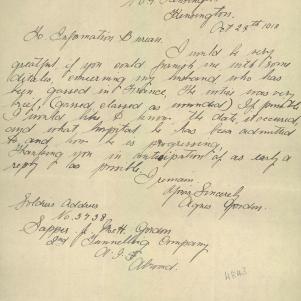 Kensington.
Oct 28th 1918
To Information Bureau.
I would be very
grateful if you could furnish me with some
details, concerning my husband who has
been gassed in France. The notice was very
brief, (Gassed, classed as wounded) If possible
I would like to know the date it occured,
and what hospital he has been admitted
to and how he is progressing.
Thanking you in anticipation of as early a
reply as possible.
I remain
Yours Sincerely
Agnes Gordon.
Soldiers Address
No. 3738.
Sapper J. Gordon
2nd Tunnelling Company
A.I.F.
Abroad.